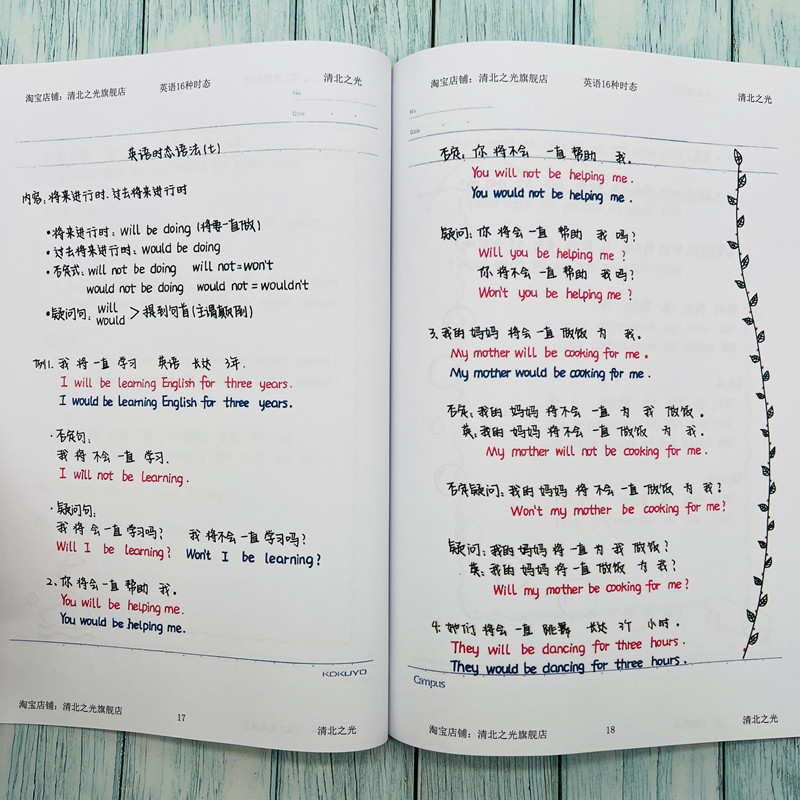 淘宝店铺：清北之光旗舰店 英语16种时态 清北之光
No.
Date
英语时态语法(七)
内容：将来进行时．过去将来进行时
•将来进行时：will be doing (将要一直做)
•过去将来进行时：would be doing
•否定式：will not be doing will not=won't
would not be doing would not = wouldn't
•疑问句：will
would > 提到句首(主谓颠倒)
例1. 我 将 一直 学习 英语 长达 3年.
I will be learning English for three years.
I would be learning English for three years.
·否定句：
我 将 不会 一直 学习.
I will not be learning.
·疑问句：
我 将 会 一直 学习吗？ 我 将不会 一直 学习吗？
Will I be learning? Won't I be learning?
2. 你 将会 一直 帮助 我.
You will be helping me.
You would be helping me.
KOKUYO
淘宝店铺：清北之光旗舰店 17 清北之光
淘宝店铺：清北之光旗舰店 英语16种时态 清北之光
No.
Date
否定：你 将不会 一直 帮助 我.
You will not be helping me.
You would not be helping me.
疑问：你 将会 一直 帮助 我 吗？
Will you be helping me?
你 将不会 一直 帮助 我 吗？
Won't you be helping me?
3. 我的 妈妈 将会 一直 做饭 为 我.
My mother will be cooking for me.
My mother would be cooking for me.
否定：我的 妈妈 将不会 一直 为 我 做饭.
英：我的 妈妈 将不会 一直 做饭 为 我.
My mother will not be cooking for me.
否定疑问：我的 妈妈 将 不会 一直 做饭 为 我？
Won't my mother be cooking for me?
疑问：我的 妈妈 将会 一直 为 我 做饭？
英：我的 妈妈 将会 一直 做饭 为 我？
Will my mother be cooking for me?
4. 她们 将会 一直 跳舞 长达 3个 小时.
They will be dancing for three hours.
They would be dancing for three hours.
Campus
淘宝店铺：清北之光旗舰店 18 清北之光